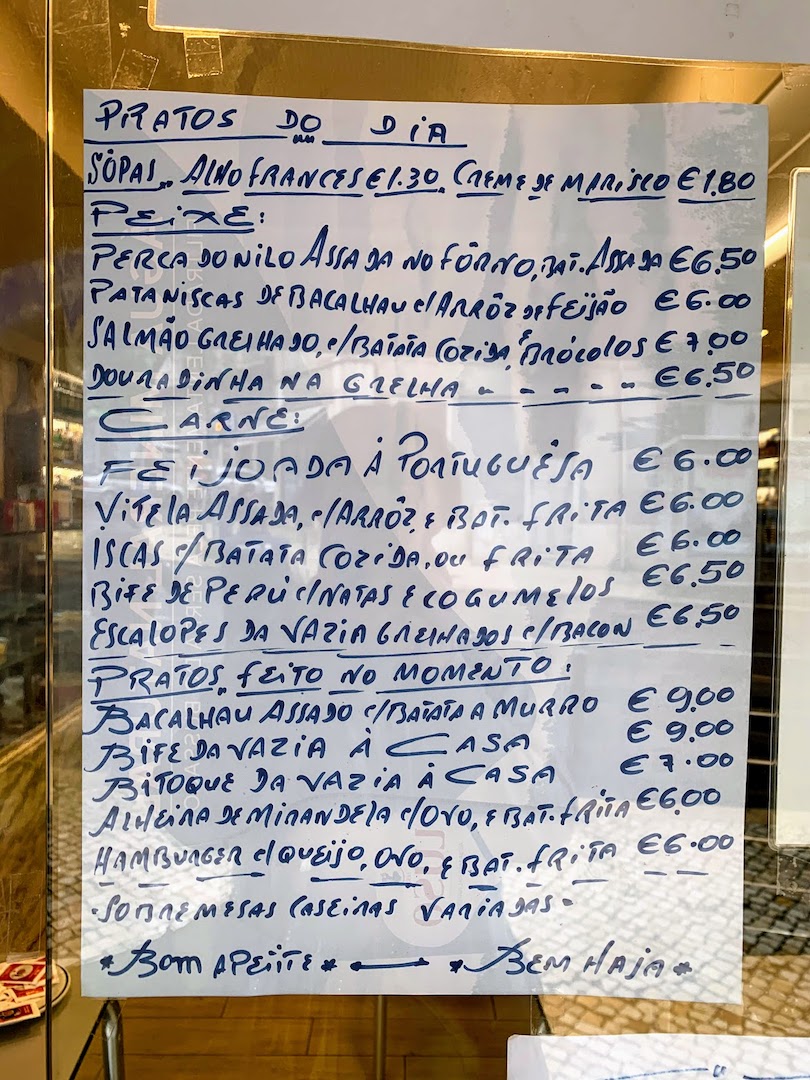 PRATOS DO DIA
SÔPAS,, ALHO FRANCES €1.30. CREME DE MARISCO €1.80
PEIXE:
PERCA DO NILO ASSADA NO FÔRNO, BAT. ASSADA €6.50
PATANISCAS DE BACALHAU C/ARRÔZ DE FEIJÃO €6.00
SALMÃO GRELHADO, C/BATATA COZIDA, E BRÓCOLOS €7,00
DOURADINHA NA GRELHA - - - - - €6,50
CARNE:
FEIJOADA À PORTUGUÊSA €6.00
VITELA ASSADA, C/ARRÔZ, E BAT. FRITA €6.00
ISCAS C/BATATA COZIDA, OU FRITA €6.00
BIFE DE PERÚ C/NATAS E COGUMELOS €6,50
ESCALOPES DA VAZIA GRELHADOS C/BACON €6,50
PRATOS,, FEITO NO MOMENTO:
BACALHAU ASSADO C/BATATA A MURRO €9,00
BIFE DA VAZIA À CASA €9.00
BITOQUE DA VAZIA À CASA €7.00
ALHEIRA DE MIRANDELA C/OVO, E BAT. FRITA €6,00
HAMBURGER C/QUEIJO, OVO, E BAT. FRITA €6.00
-SOBREMESAS CASEIRAS VARIADAS-
*BOM APETITE* ←→ *BEM HAJA*